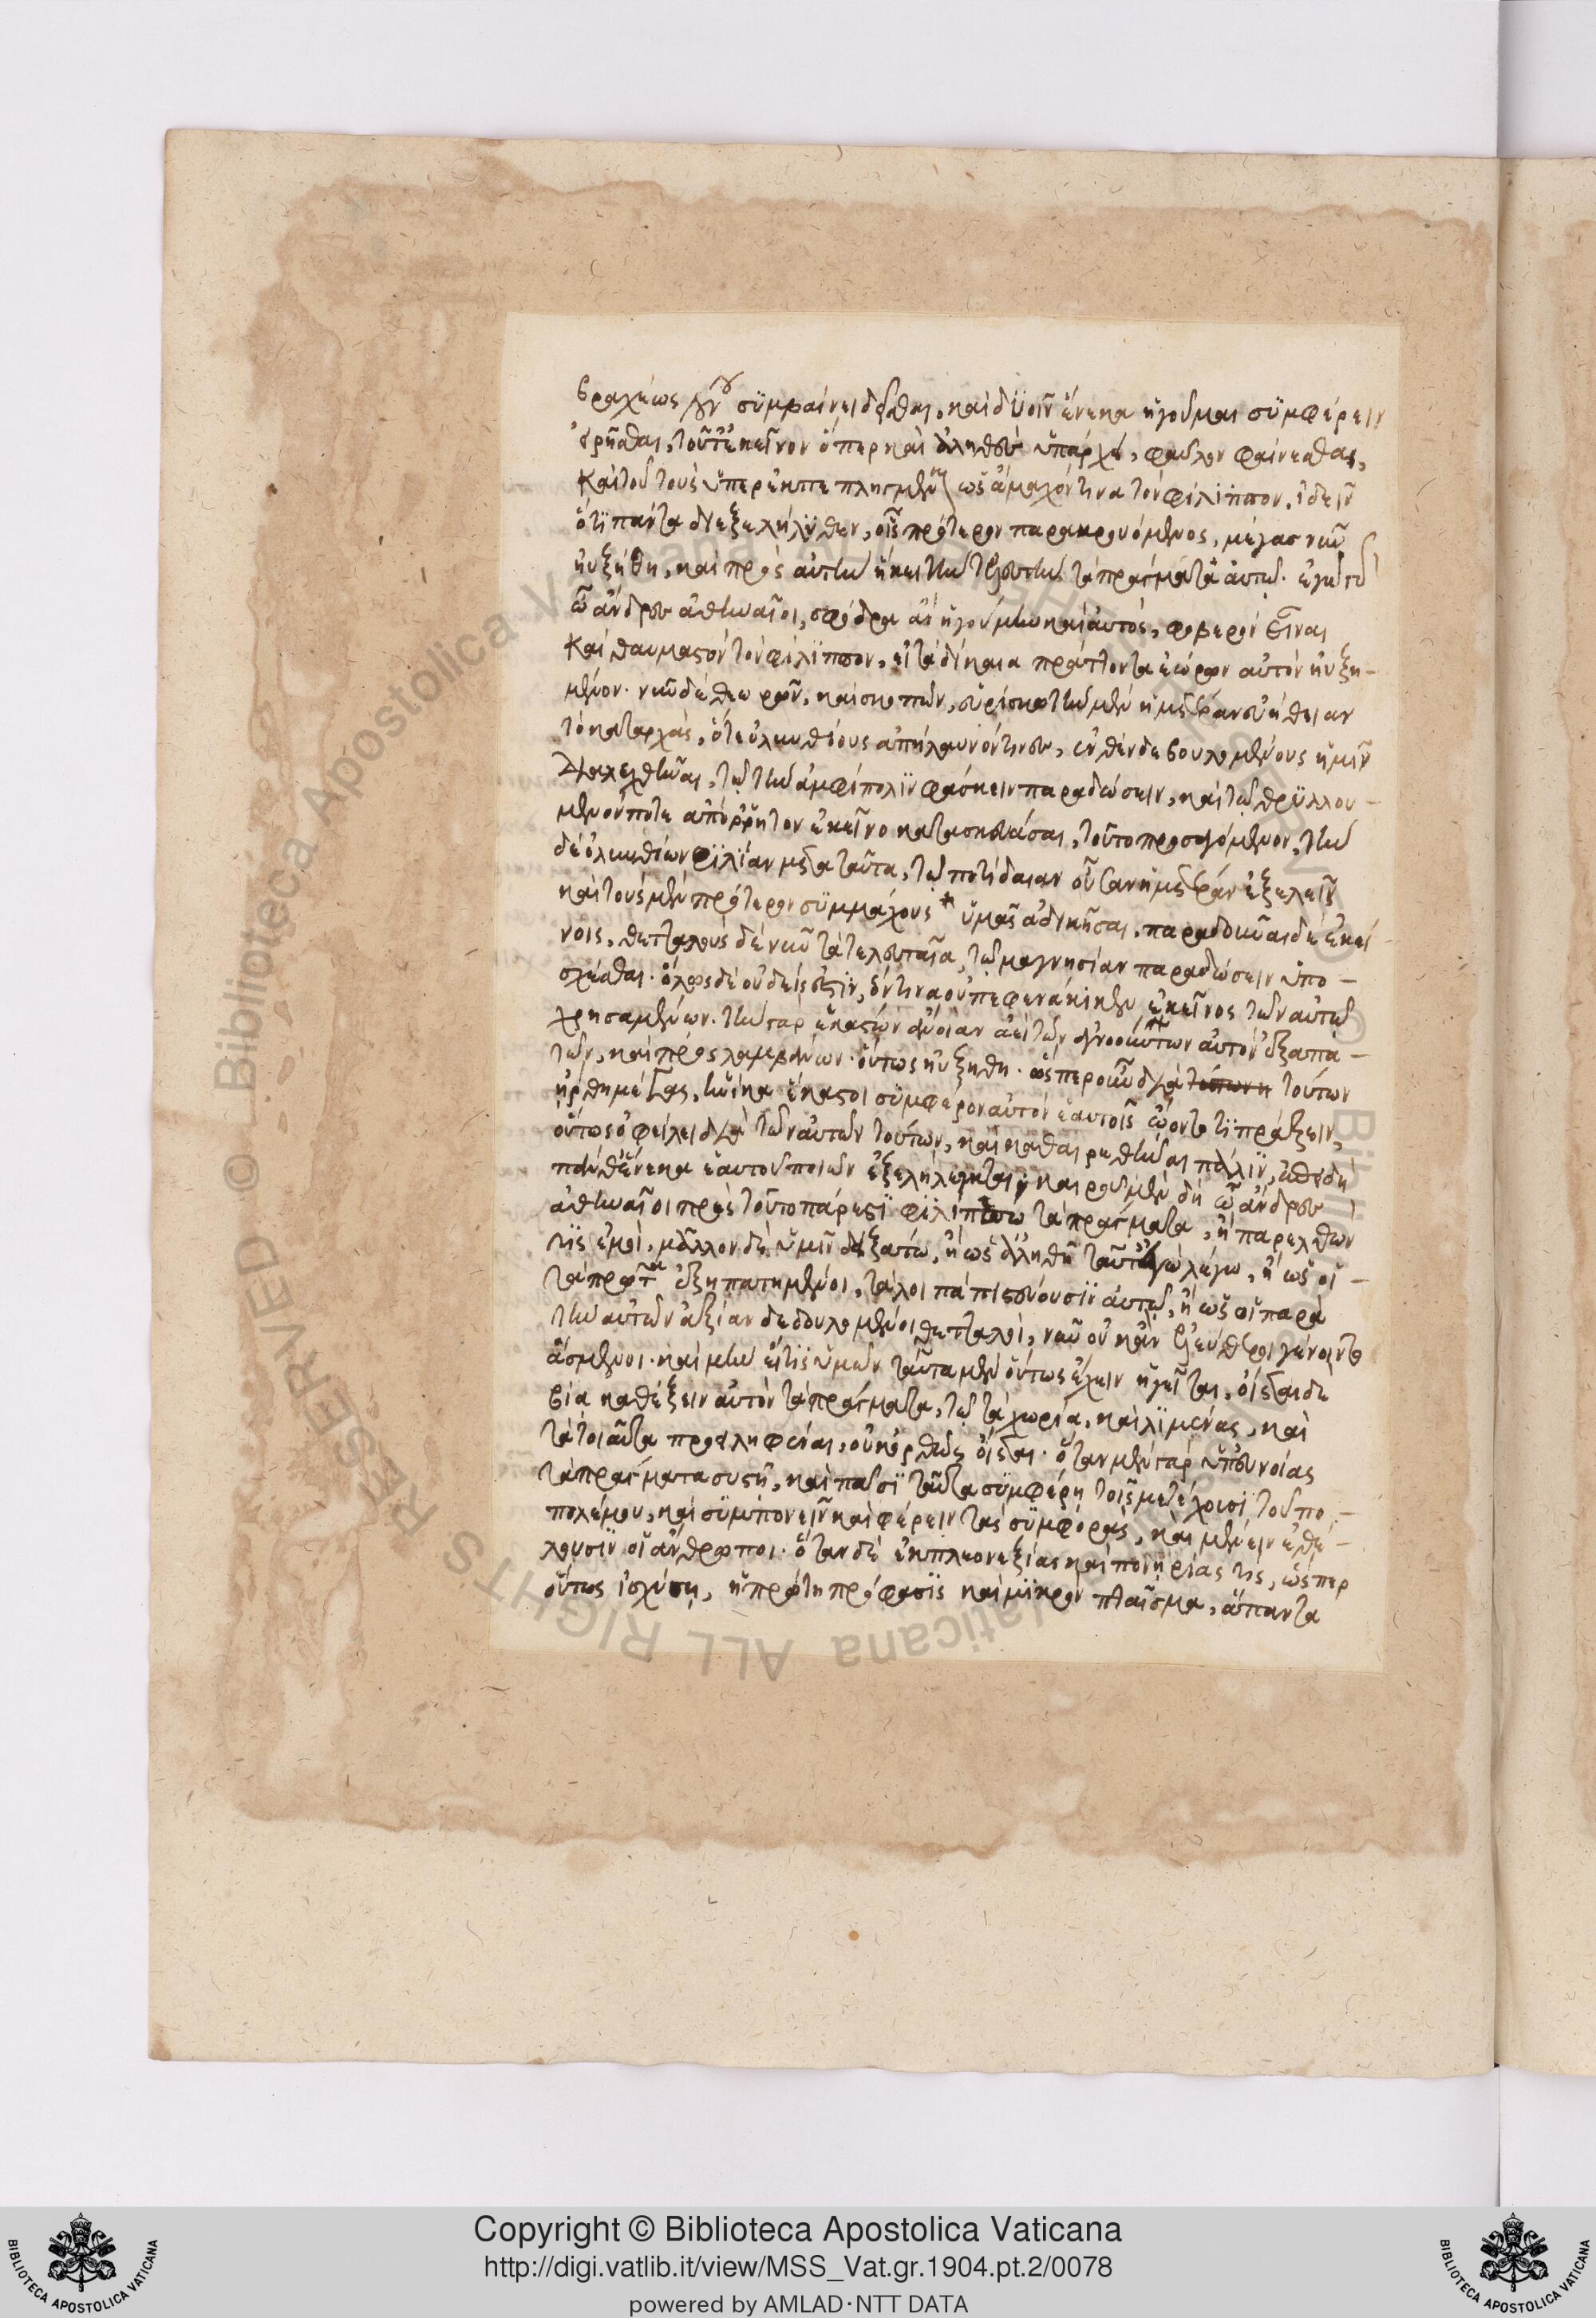 βραχέως νῦν συμβαίνει δεῖσθαι, καὶ δυοῖν ἕνεκα ἡγοῦμαι συμφέρειν
εἰρῆσθαι, τοῦ τ' ἐκεῖνον ὅπερ καὶ ἀληθὲς ὑπάρχει, φαῦλον φαίνεσθαι,
καὶ τοῦ τοὺς ὑπερεκπεπληγμένους ὡς ἄμαχόν τινα τὸν φίλιππον, ἰδεῖν
ὅτι πάντα διεξελήλυθεν, οἷς πρότερον παρακρουόμενος, μέγας νῦν
ηὐξήθη, καὶ πρὸς αὐτὴν ἥκει τὴν τελευτὴν τὰ πράγματα αὐτῷ. ἐγὼ γὰρ
ὦ ἄνδρες ἀθηναῖοι, σφόδρα ἂν ἡγούμην καὶ αὐτὸς, φοβερὸν εἶναι
καὶ θαυμαστὸν τὸν φίλιππον, εἰ τὰ δίκαια πράττοντα ἑώρων αὐτὸν ηὐξη-
μένον. νῦν δὲ θεωρῶν, καὶ σκοπῶν, εὑρίσκω τὴν μὲν ἡμετέραν εὐήθειαν
τὸ καταρχὰς, ὅτε ὀλυνθίους ἀπήλαυνόν τινες, ἐνθένδε βουλομένους ἡμῖν
διαλεχθῆναι, τῷ τὴν ἀμφίπολιν φάσκειν παραδώσειν, καὶ τῷ θρυλλου-
μενόν ποτε ἀπόρρητον ἐκεῖνο κατασκευάσαι, τοῦτο προσαγόμενον, τὴν
δὲ ὀλυνθίων φιλίαν μετὰ ταῦτα, τῷ ποτίδαιαν οὖσαν ἡμετέραν ἐξελεῖν
καὶ τοὺς μὲν πρότερον συμμάχους * ὑμᾶς ἀδικῆσαι, παραδοῦναι δὲ ἐκεί-
νοις, θετταλοὺς δὲ νῦν τὰ τελευταῖα, τῷ μαγνησίαν παραδώσειν ὑπο-
σχέσθαι. ὅλως δὲ οὐδείς ἐστιν, ὅντινα οὐ πεφενάκικεν ἐκεῖνος τῶν αὐτῷ
χρησαμένων. τὴν γὰρ ἑκάστων ἄνοιαν ἀεὶ τῶν ἀγνοούντων αὐτὸν ἐξαπα-
τῶν, καὶ προσλαμβάνων. οὕτως ηὐξήθη. ὥσπερ οὖν διὰ τούτων
ἤρθη μέγας, ἡνίκα ἕκαστοι συμφέρον αὐτὸν ἑαυτοῖς ᾤοντό τι πράξειν,
οὕτως ὀφείλει διὰ τῶν αὐτῶν τούτων, καὶ καθαιρεθῆναι πάλιν, ἐπειδὴ
πάνθ' ἕνεκα ἑαυτοῦ ποιῶν ἐξελήλεγκται, καιροῦ μὲν δὴ ὦ ἄνδρες
ἀθηναῖοι πρὸς τοῦτο πάρεστι φιλίππῳ τὰ πράγματα, ἢ παρελθών
τις ἐμοὶ, μᾶλλον δὲ ὑμῖν δειξάτω, ἢ ὡς ἀληθῆ ταῦτ' ἐγὼ λέγω, ἢ ὡς οἱ
τὰ πρῶτα ἐξηπατημένοι, τὰ λοιπὰ πιστεύουσιν αὐτῷ, ἢ ὡς οἱ παρὰ
τὴν αὐτῶν ἀξίαν δεδουλομένοι θετταλοὶ, νῦν οὐκ ἂν ἐλεύθεροι γένοιντο
ἄσμενοι. καὶ μὴν εἴ τις ὑμῶν ταῦτα μὲν οὕτως ἔχειν ἡγεῖται, οἴεται δὲ
βίᾳ καθέξειν αὐτὸν τὰ πράγματα, τῷ τὰ χωρία, καὶ λιμένας, καὶ
τὰ τοιαῦτα προειληφέναι, οὐκ ὀρθῶς οἴεται. ὅταν μὲν γὰρ ὑπ' εὐνοίας
τὰ πράγματα συστῇ, καὶ πᾶσι ταῦτα συμφέρῃ τοῖς μετέχουσι τοῦ πο-
πολέμου, καὶ συμπονεῖν καὶ φέρειν τὰς συμφορὰς, καὶ μένειν ἐθέ-
λουσιν οἱ ἄνθρωποι. ὅταν δὲ ἐκ πλεονεξίας καὶ πονηρίας τις, ὥσπερ
οὕτως ἰσχύσῃ, ἡ πρώτη πρόφασις καὶ μικρὸν πταῖσμα, ἅπαντα
Copyright © Biblioteca Apostolica Vaticana
http://digi.vatlib.it/view/MSS_Vat.gr.1904.pt.2/0078
powered by AMLAD·NTT DATA
BIBLIOTECA APOSTOLICA VATICANA
BIBLIOTECA APOSTOLICA VATICANA